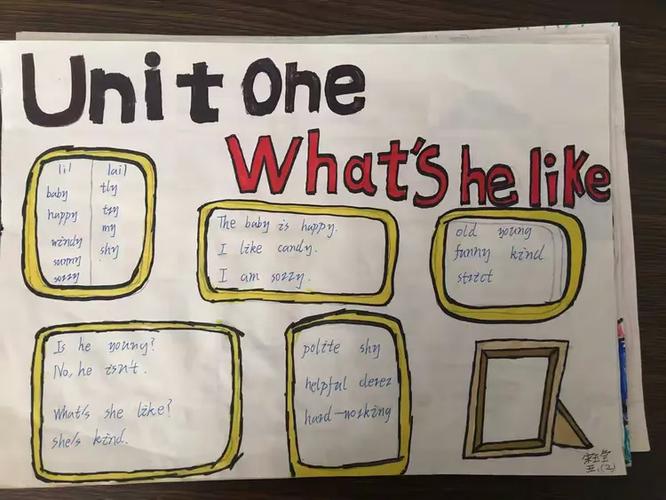 Unit One
What's he like
|i| |ai|
baby fly
happy try
windy my
sunny shy
sorry
The baby is happy.
I like candy.
I am sorry.
old young
funny kind
strict
Is he young?
No, he isn't.
What's she like?
she's kind.
polite shy
helpful clever
hard-working
五.(2)